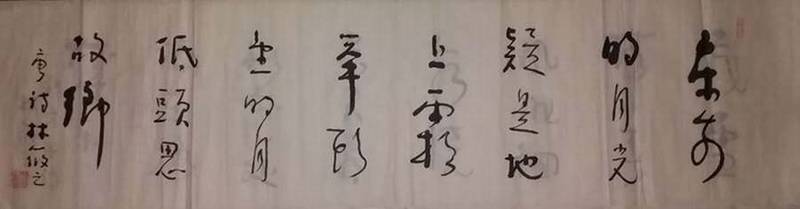 床前
明月光
疑是地
上霜
举頭
望明月
低頭思
故鄉
唐诗林筱之